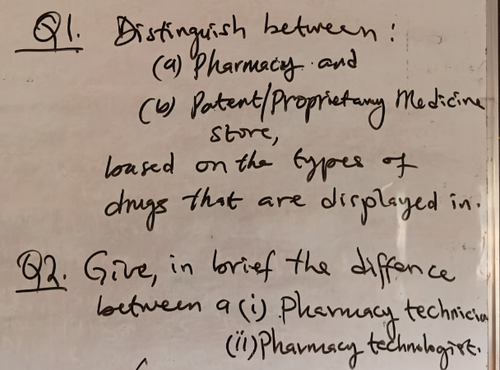 Q1. Distinguish between:
(a) Pharmacy and
(b) Patent/Proprietary Medicine
store,
based on the types of
drugs that are displayed in.
Q2. Give, in brief the diffence
between a (i) Pharmacy technician
(ii) Pharmacy technologist.